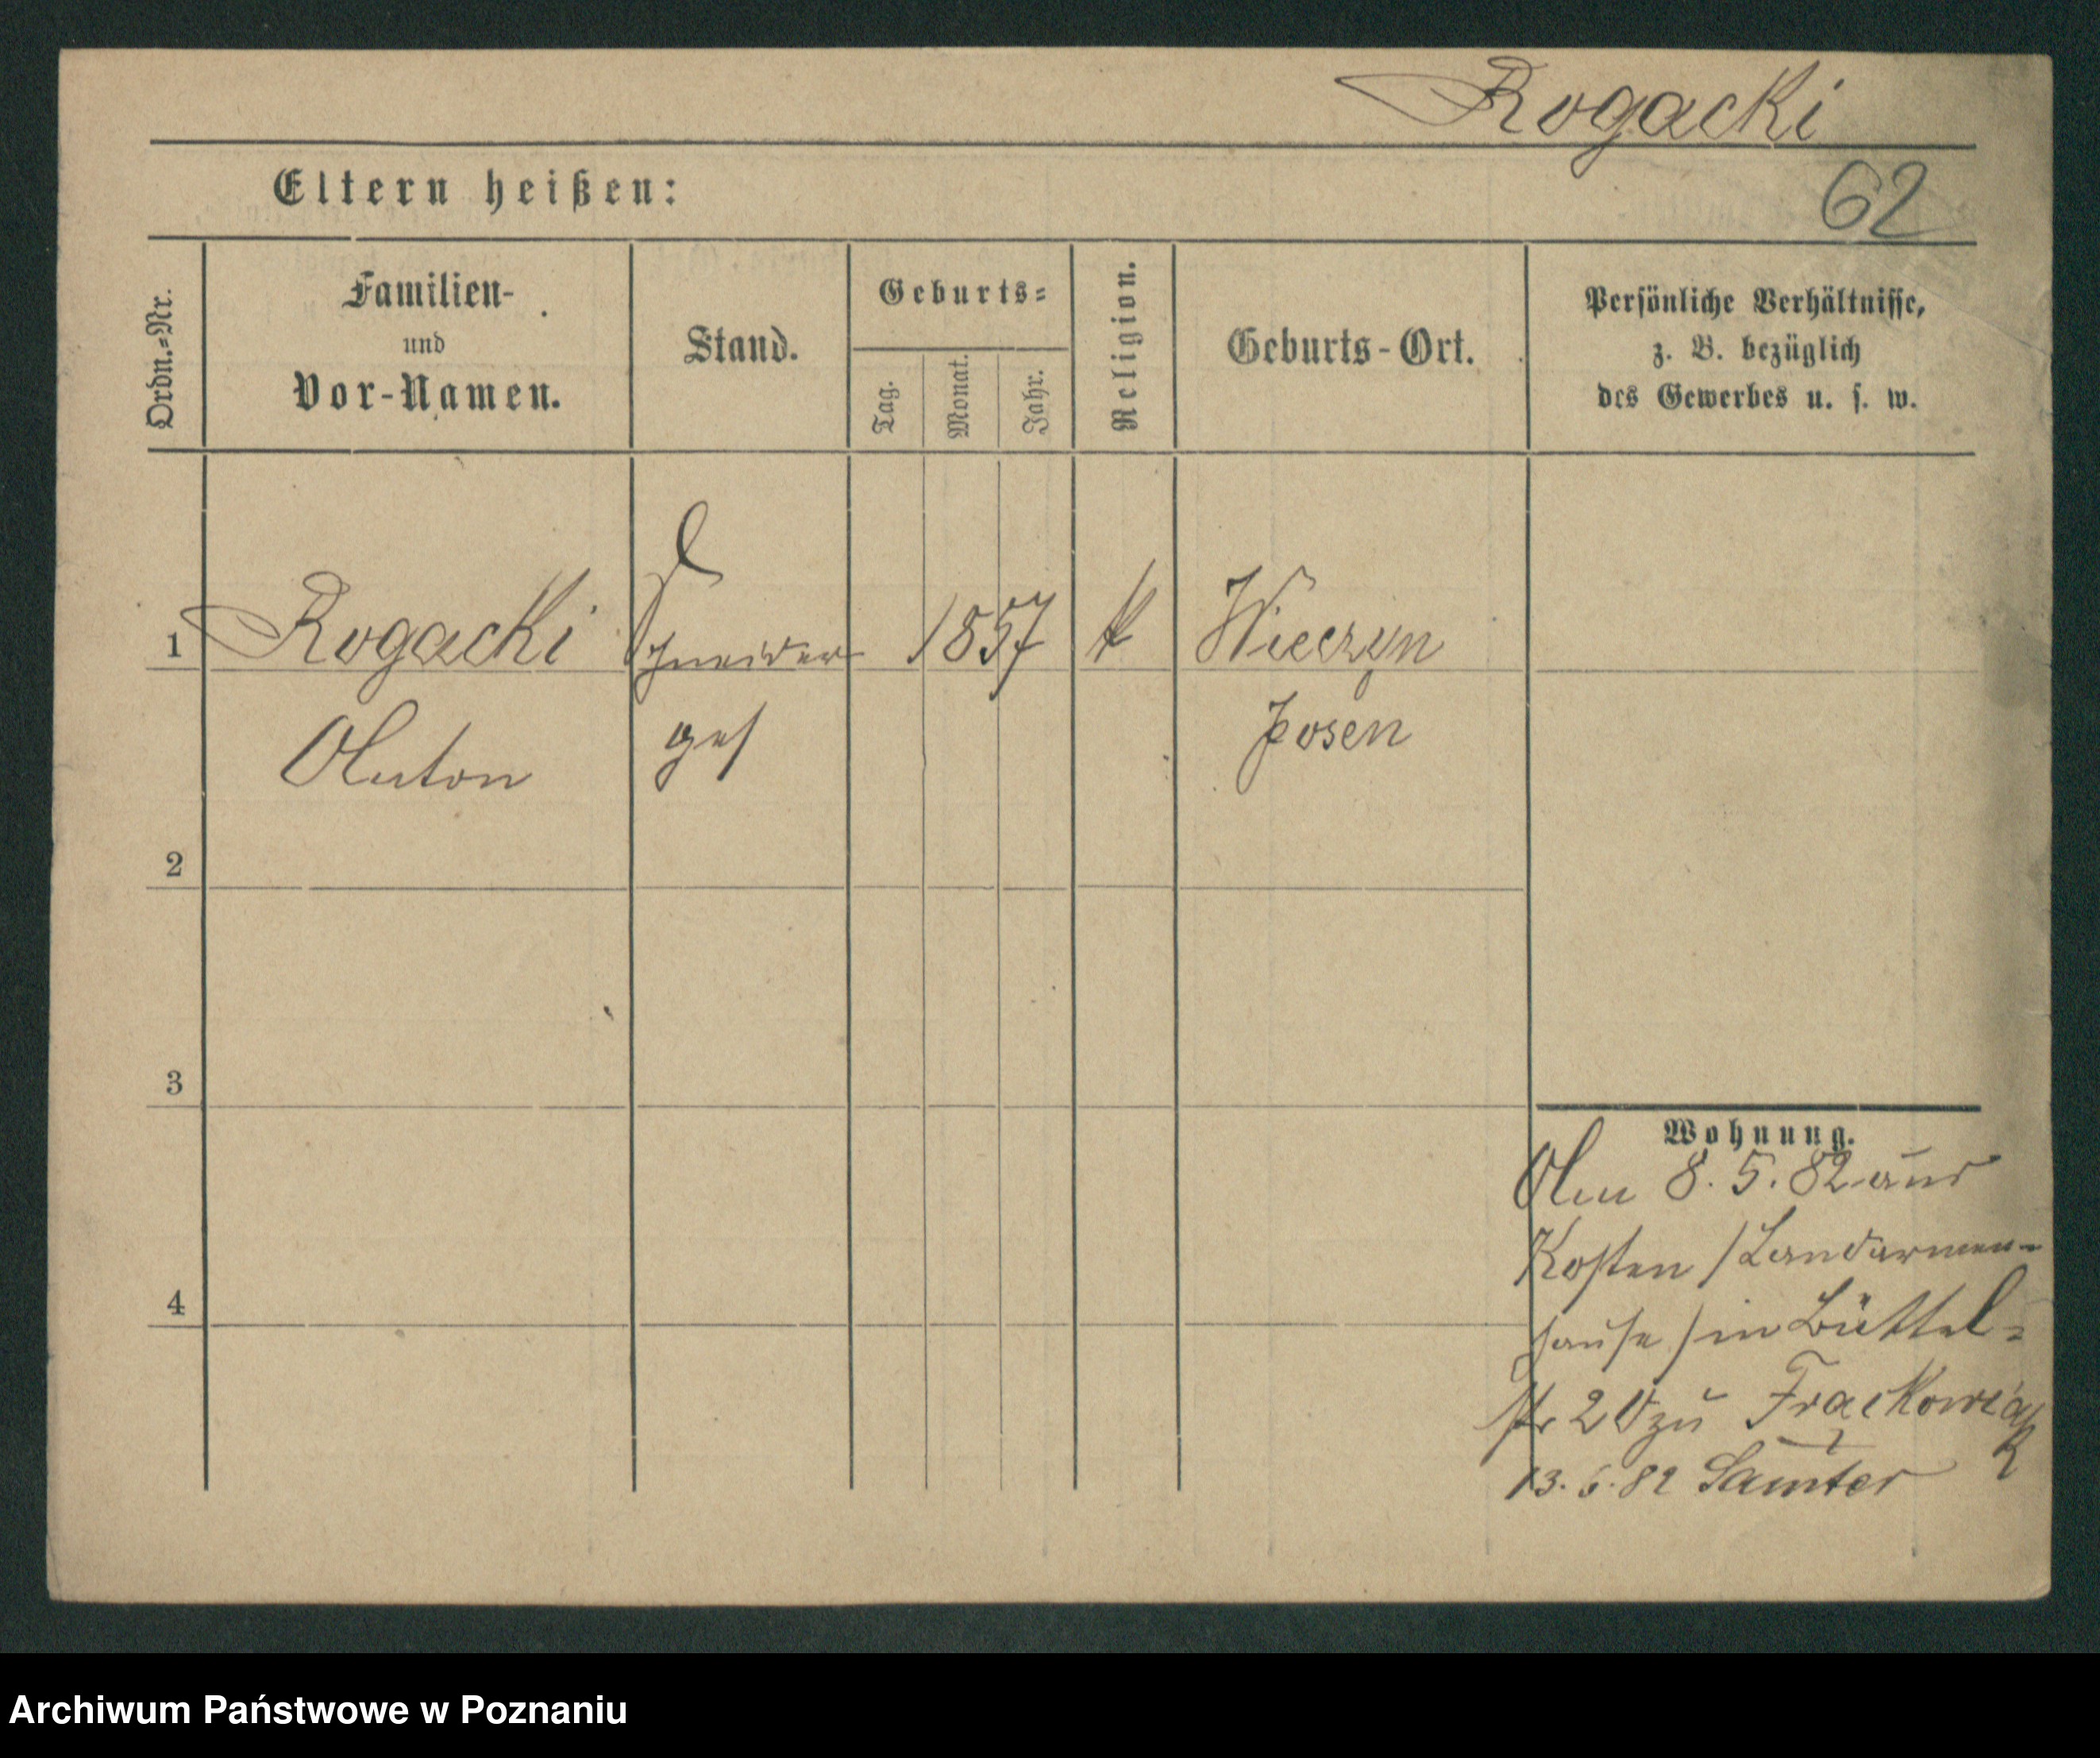 Rogacki
Eltern heißen:
62
Ordn.-Nr.
Familien-
und
Vor-Namen.
Stand.
Geburts-
Tag.
Monat.
Jahr.
Religion.
Geburts-Ort.
Persönliche Verhältnisse,
z. B. bezüglich
des Gewerbes u. s. w.
1
Rogacki
Schneider
1857
k
Wieczyn
Anton
ges
Posen
2
3
4
Wohnung.
Am 8. 5. 82 aus
Kosten /Landarmen-
hause/ in Büttel-
str 20 zu Frąckowiak
13. 6. 82 Samter
Archiwum Państwowe w Poznaniu